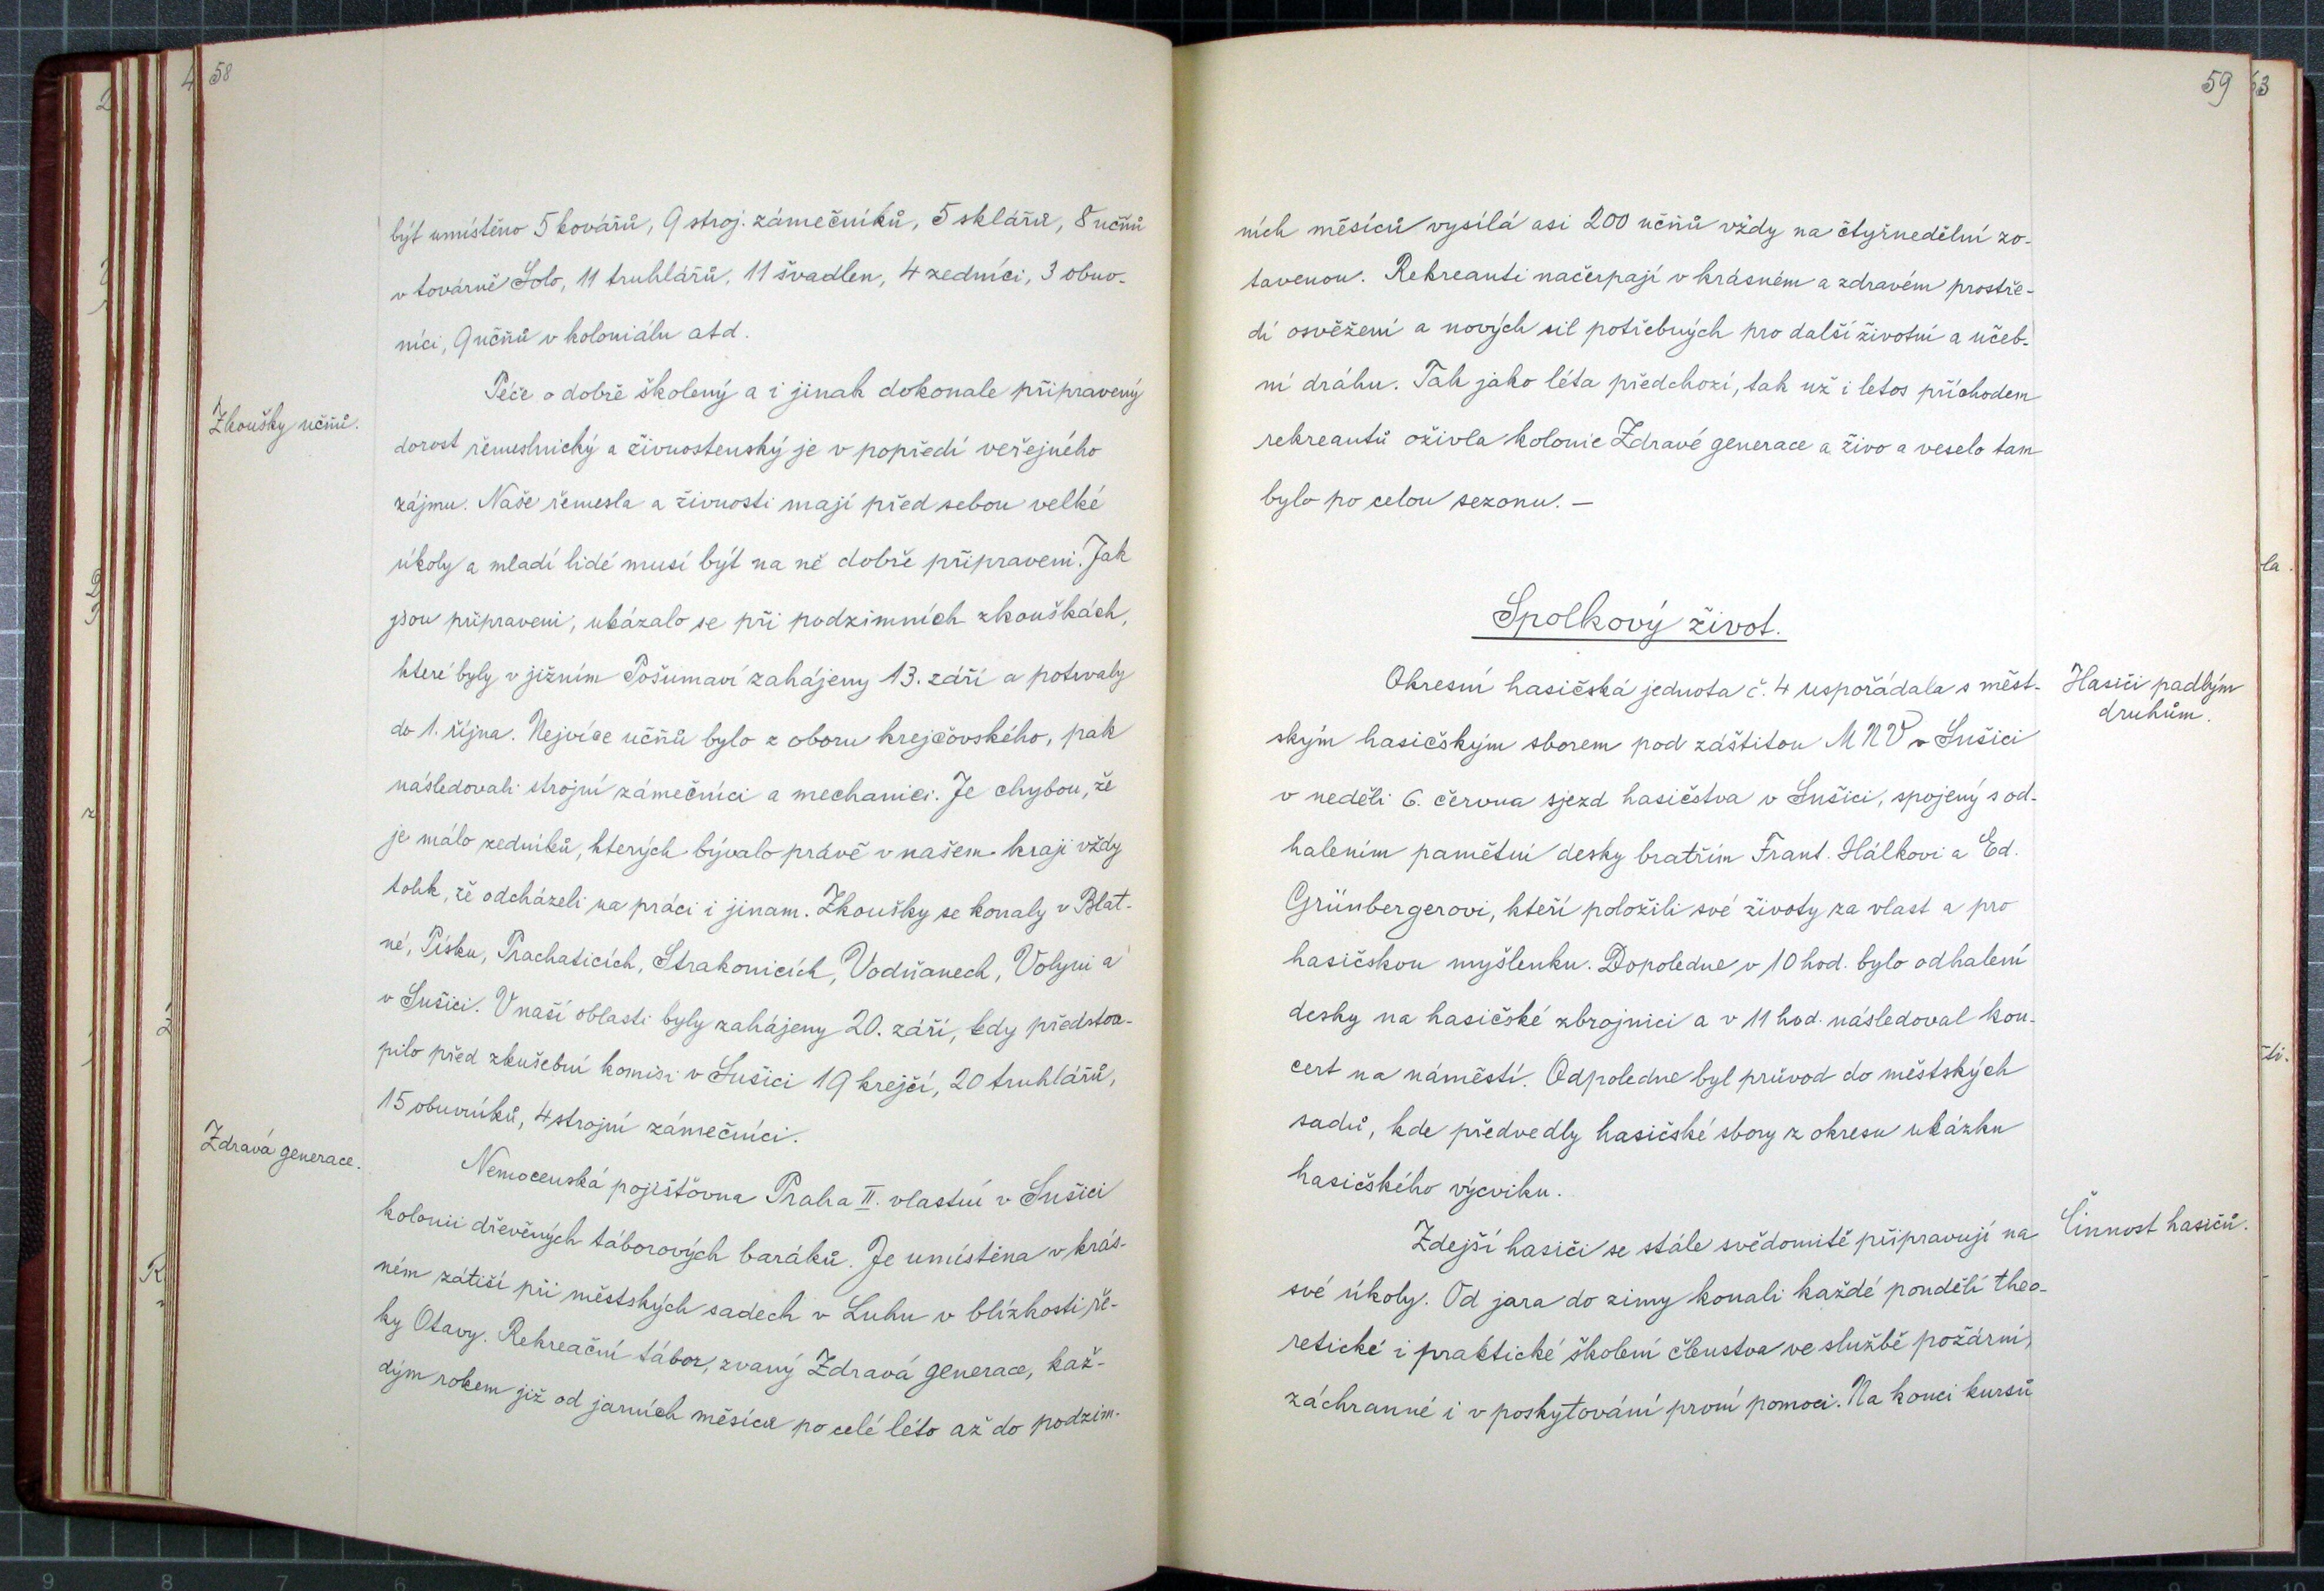 58
být umístěno 5 kovářů, 9 stroj. zámečníků, 5 sklářů, 8 učňů
v továrně Solo, 11 truhlářů, 11 švadlen, 4 zedníci, 3 obuv-
níci, 9 učňů v koloniálu atd.
Zkoušky učňů.
Péče o dobře školený a i jinak dokonale připravený
dorost řemeslnický a živnostenský je v popředí veřejného
zájmu. Naše řemesla a živnosti mají před sebou velké
úkoly a mladí lidé musí být na ně dobře připraveni. Jak
jsou připraveni, ukázalo se při podzimních zkouškách,
které byly v jižním Pošumaví zahájeny 13. září a potrvaly
do 1. října. Nejvíce učňů bylo z oboru krejčovského, pak
následovali strojní zámečníci a mechanici. Je chybou, že
je málo zedníků, kterých bývalo právě v našem kraji vždy
tolik, že odcházeli na práci i jinam. Zkoušky se konaly v Blat-
né, Písku, Prachaticích, Strakonicích, Vodňanech, Volyni a
v Sušici. V naší oblasti byly zahájeny 20. září, kdy předstou-
pilo před zkušební komisi v Sušici 19 krejčí, 20 truhlářů,
15 obuvníků, 4 strojní zámečníci.
Zdravá generace.
Nemocenská pojišťovna Praha II. vlastní v Sušici
kolonii dřevěných táborových baráků. Je umístěna v krás-
ném zátiší při městských sadech v Luhu v blízkosti ře-
ky Otavy. Rekreační tábor, zvaný Zdravá generace, kaž-
dým rokem již od jarních měsíců po celé léto až do podzim-
59
ních měsíců vysílá asi 200 učňů vždy na čtyřnedělní zo-
tavenou. Rekreanti načerpají v krásném a zdravém prostře-
dí osvěžení a nových sil potřebných pro další životní a učeb-
ní dráhu. Tak jako léta předchozí, tak už i letos příchodem
rekreantů oživla kolonie Zdravé generace a živo a veselo tam
bylo po celou sezonu. —
Spolkový život.
Hasiči padlým
druhům.
Okresní hasičská jednota č. 4 uspořádala s měst-
ským hasičským sborem pod záštitou MNV v Sušici
v neděli 6. června sjezd hasičstva v Sušici, spojený s od-
halením pamětní desky bratřím Frant. Hálkovi a Ed.
Grünbergerovi, kteří položili své životy za vlast a pro
hasičskou myšlenku. Dopoledne v 10 hod. bylo odhalení
desky na hasičské zbrojnici a v 11 hod. následoval kon-
cert na náměstí. Odpoledne byl průvod do městských
sadů, kde předvedly hasičské sbory z okresu ukázku
hasičského výcviku.
Činnost hasičů.
Zdejší hasiči se stále svědomitě připravují na
své úkoly. Od jara do zimy konali každé pondělí theo-
retické i praktické školení členstva ve službě požární,
záchranné i v poskytování první pomoci. Na konci kursů